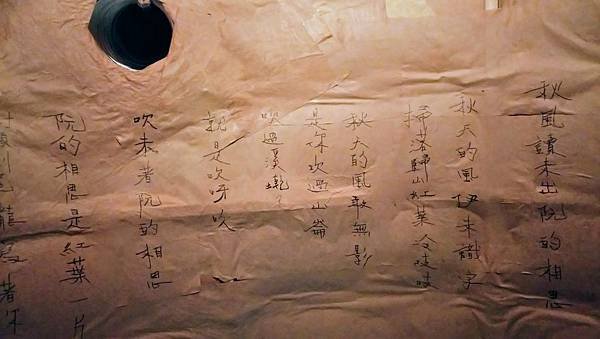 秋風讀未出阮的相思
秋天的風伊未識字
掃落歸山紅葉冷吱吱
秋天的風敢無影
是吹過山崙
過溪墘了
就是吹呀吹
吹未著阮的相思
阮的相思是紅葉一片